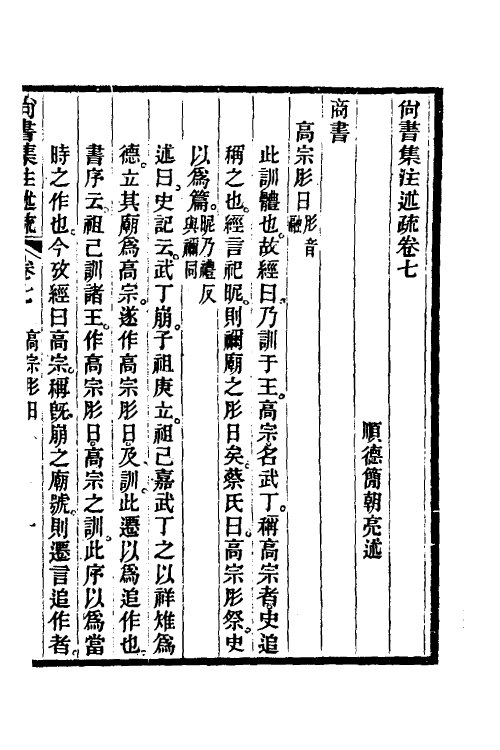 尙書集注述疏卷七
順德簡朝亮述
商書
高宗肜日肜音融
此訓體也故經曰乃訓于王高宗名武丁稱高宗者史追
稱之也經言祀昵則禰廟之肜日矣蔡氏曰高宗肜祭史
以爲篇昵乃禮反與禰同
述曰史記云武丁崩子祖庚立祖己嘉武丁之以祥雉爲
德立其廟爲高宗遂作高宗肜日及訓此遷以爲追作也
書序云祖己訓諸王作高宗肜日高宗之訓此序以爲當
時之作也今攷經曰高宗稱旣崩之廟號則遷言追作者
尙書集注述疏 卷七 高宗肜日 一